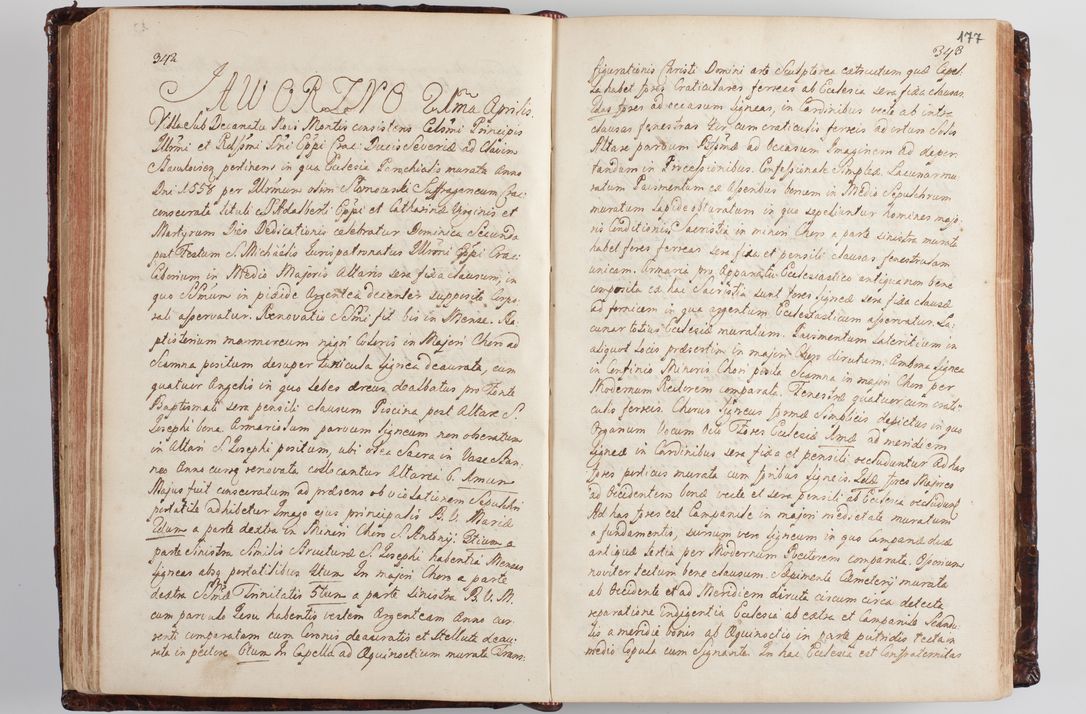 342
JAWORZNO Ultma Aprilis.
Villa sub Decanatu Novi Montis consistens Celsmi Principis
Illmi et Rdssmi Dni Eppi Crac: Ducis Severiæ ad Clavim
Slawkovien pertinens in qua Ecclesia Parochialis murata Anno
Dni 1558 per Illrmum olim Suffraganeum Crac:
consecrata tituli S. Adalberti Eppi et Catharinæ Virginis et
Martyrum Dies Dedicationis celebratur Dominica Secunda
post Festum S. Michaëlis Juris patronatus Illmi Eppi Crac:
Ciborium in Medio Majoris Altaris sera fida clausum, in
quo SSmum in pixide Argentea decenter supposito Corpo-
rali asservatur. Renovatio SSmi fit bis in Mense. Ba-
ptisterium marmoreum nigri Coloris in Majori Choro ad
Scamna positum desuper Tunicula lignea deaurata, cum
quatuor Angelis in quo Lebes æreus dealbatus pro Fonte
Baptismali sera pensili clausum Piscina post Altare S.
Josephi bona Armariolum parvum ligneum non obseratum
in Altari S. Josephi positum, ubi olea Sacra in Vase Stan-
neo Anno currę renovata collocantur Altaria 6. Imum
Majus fuit consecratum ad præsens ob violationem Sepulchri
portatile adhibetur Imago ejus principalis B. V. Mariæ
2dum a parte dextra in Minori Choro S. Antonij. 3tium a
parte Sinistra Similis Structuræ S. Josephi habentia Mensas
ligneas absq portatilibus 4tum In majori Choro a parte
dextra SSmæ Trinitatis 5tum a parte Sinistra B. V. M.
cum parvulo Jesu habentis vestem Argenteam Anno cur-
renti comparatam cum Coronis deauratis et Stellula deau-
rata in pectore 6tum In Capella ad Æquinoctium murata Trans-
177
343
figurationis Christi Domini arte Sculptorea exstructum quæ Capel-
la habet fores Craticulares ferreas ab Ecclesia sera fida clausas
fores ad occasum ligneas, in Cardinibus vecte ab intra
clausas fenestras ter cum craticulis ferreis ad ortum Solis
Altare parvum ad Occasum Imaginem ad depor-
tandam in Processionibus. Confessionale Simplex. Lacunar mu-
ratum Pavimentum ex Asseribus bonum in Medio Sepulchrum
muratum Lapide obturatum in quo sepeliuntur homines majo-
ris Conditionis Sacristia in minori Choro a parte sinistra murata
habet fores ferreas sera fida et pensili clausas fenestrulam
unicam. Armaria pro Apparatu Ecclesiastico antiqua non bene
composita ex hac Sacristia sunt fores ligneæ sera fida clausæ
ad fornicem in qua argentum Ecclesiasticum asservatur. La-
cunar totius Ecclesiæ muratum. Pavimentum Lateritium in
aliquot Locis præsertim in majori Choro dirutum. Ambona lignea
in Confinio Minoris Chori posita Scamna in majori Choro per
Modernum Rectorem comparata. Fenestræ quatuor cum crati-
culis ferreis. Chorus ligneus formæ Simplicis depictus in quo
Organum Vocum Octo Fores Ecclesiæ Imæ ad meridiem
ligneæ in Cardinibus sera fida et pensili occluduntur Ad has
fores porticus murata cum foribus ligneis. 2dæ fores Majores
ad Occidentem bonæ vecte et sera pensili ab Ecclesia occludunt
Ad has fores est Campanile in majori medietate muratum
a fundamentis, sursum vero ligneum in quo Campanæ duæ
antiquæ tertia per Modernum Rectorem comparata. Ossorium
noviter tectum bene clausum. Sepimenta Cemeterij murata
ab Occidente et ad Meridiem diruta circum circa detecta
reparatione indigentia Ecclesia ab extra et Campanile Scandu-
lis a meridie bonis ab Æquinoctio in parte putridis tecta in
medio Copula cum Signante. In hac Ecclesia est Confraternitas